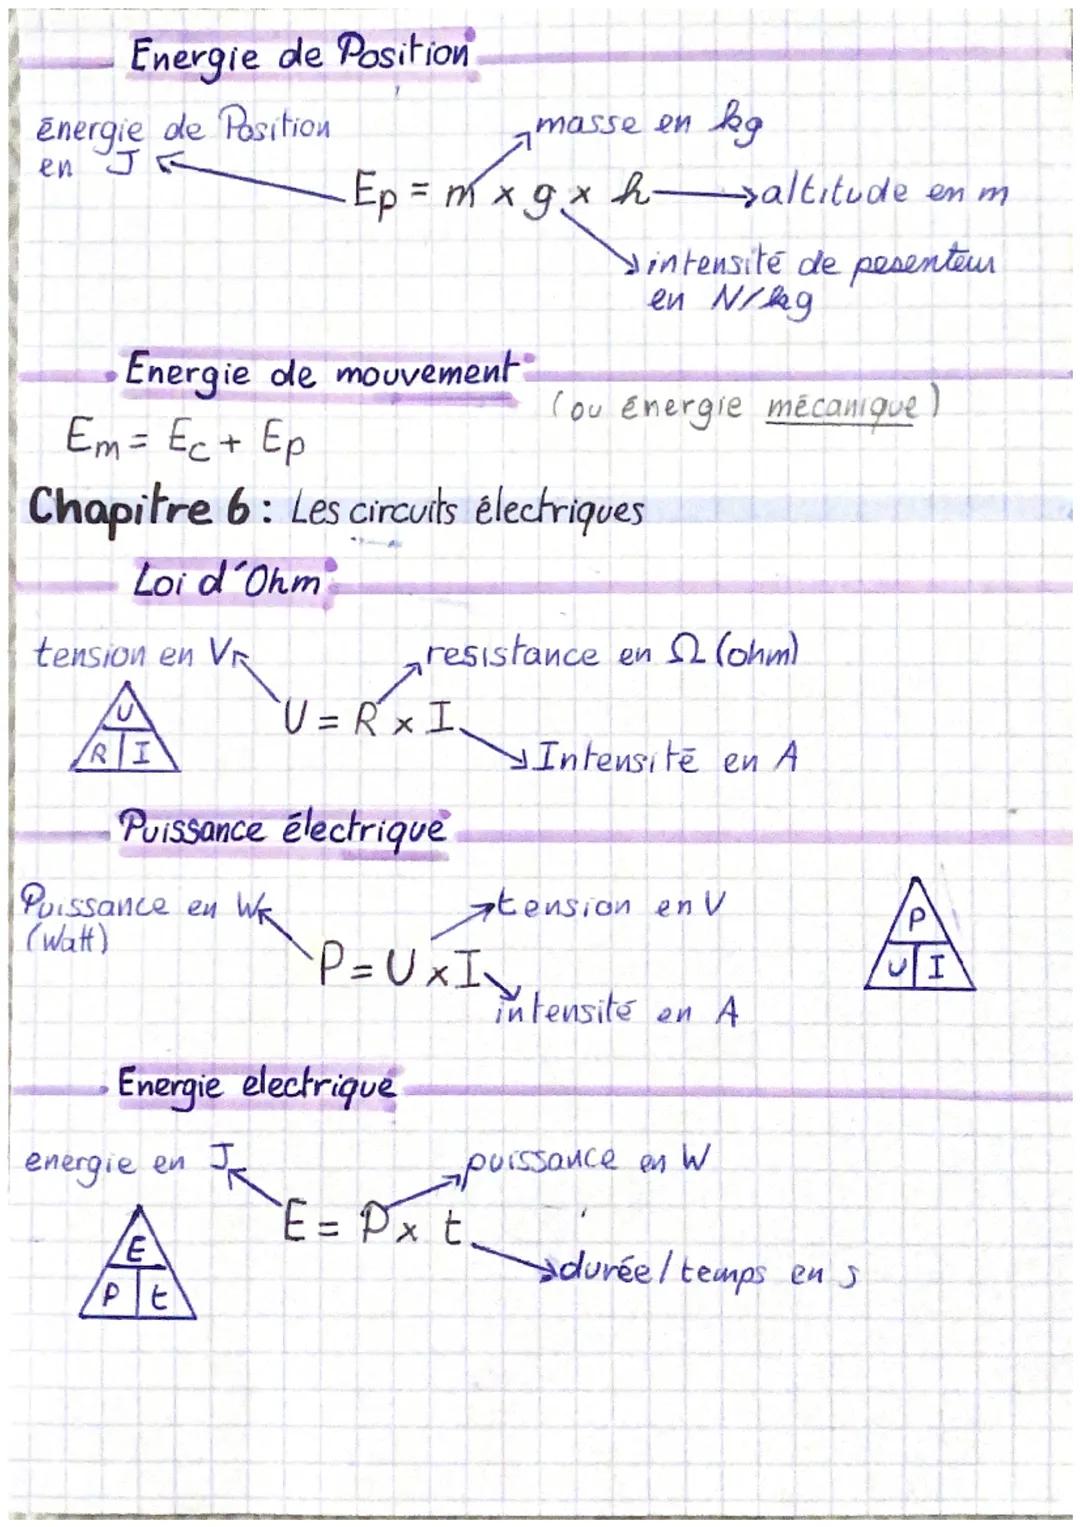 Energie de Position
énergie de Position
en J
masse en kg
Ep = m x g x h
altitude en m
intensité de pesenteur
en N/kg
Energie de mouvement
(ou énergie mécanique)
Em = Ec + Ep
Chapitre 6 : Les circuits électriques
Loi d'Ohm
tension en V
resistance en Ω (ohm)
U = R x I
U
R I
Intensité en A
Puissance électrique
Puissance en W
(Watt)
tension en V
P = U x I
intensité en A
P
U I
Energie electrique
energie en J
puissance en W
E = P x t
durée / temps en s
E
P t